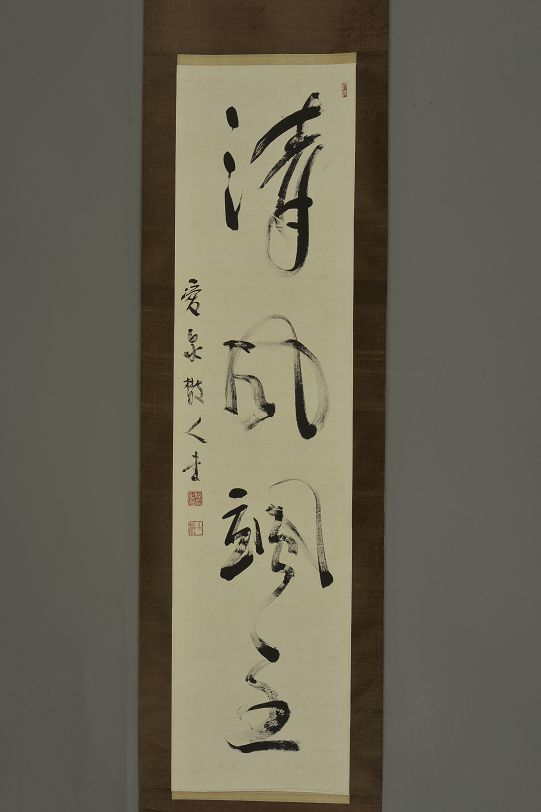 清風颯至
愛泉散人書